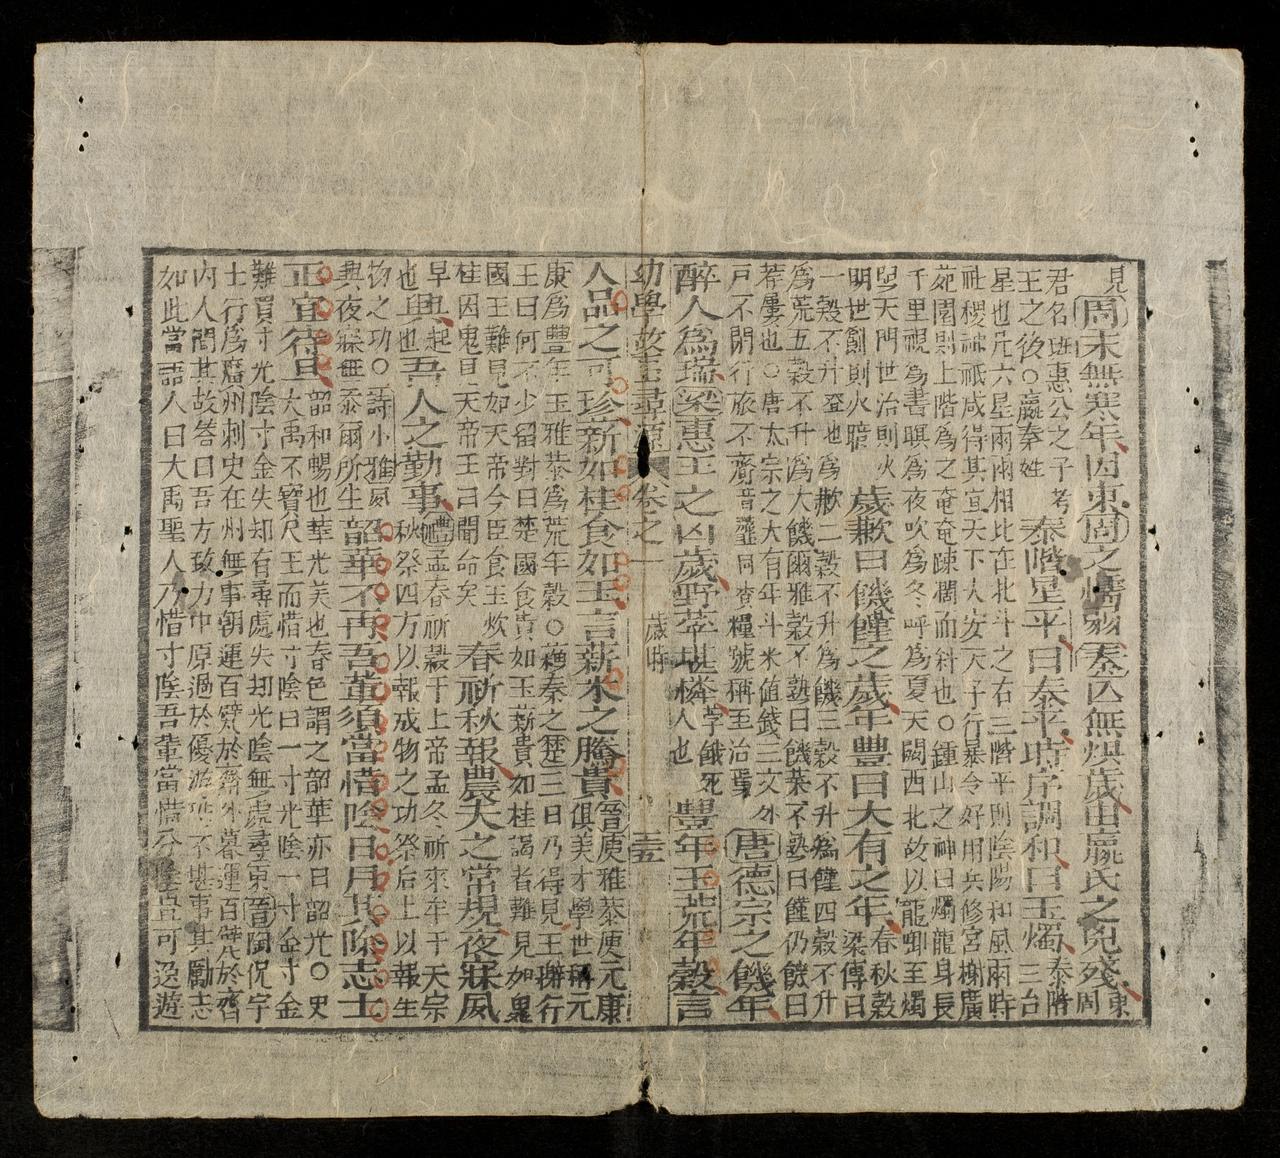 見周末無寒年因東周之懦弱秦亡無燠歲由嬴氏之兇殘東周
君名班惠公之子考
王之後○嬴秦姓
泰階星平曰泰平時序調和曰玉燭泰階三台
星也凡六星兩兩相比在北斗之右三階平則陰陽和風雨時
社稷神祇咸得其宜天下人安天子行暴令好用兵修宮榭廣
苑囿則上階為之奄奄疎闊而斜也○鍾山之神曰燭龍身長
千里視為晝瞑為夜吹為冬呼為夏天闕西北故以龍啣至燭
照天門世治則火
明世亂則火暗
歲歉曰饑饉之歲年豐曰大有之年春秋穀梁傳曰
一穀不升登也為歉二穀不升為饑三穀不升為饉四穀不升
為荒五穀不升為大饑爾雅穀不熟曰饑菜不熟曰饉仍饑曰
荐屢也○唐太宗之大有年斗米值錢三文外
戸不閉行旅不齎音虀同賫糧號稱至治焉
唐德宗之饑年
醉人為瑞梁惠王之凶歲野莩堪憐莩餓死人也
豐年玉荒年穀言
幼學故事尋源
卷之一
歲時
三五
人品之可珍薪如桂食如玉言薪米之騰貴晉庾雅恭庾元康
俱美才學世稱元
康為豐年玉雅恭為荒年穀○蘇秦之楚三日乃得見王辭行
王曰何不少留對曰楚國食貴如玉薪貴如桂謁者難見如鬼
國王難見如天帝今臣食玉炊
桂因鬼見天帝王曰聞命矣
春祈秋報農夫之常規夜寐夙
興吾人之勤事禮孟春祈穀于上帝孟冬祈來年于天宗
早起也也
秋祭四方以報成物之功祭后土以報生
物之功○詩小雅夙
興夜寐無忝爾所生
韶華不再吾輩須當惜陰日月其除志士
正宜待旦韶和暢也華光美也春色謂之韶華亦曰韶光○史
大禹不寶尺玉而惜寸陰曰一寸光陰一寸金寸金
難買寸光陰寸金失却有尋處失却光陰無處尋東晉陶侃字
士行為廣州刺史在州無事朝運百甓於齋外暮運百甓於齋
內人問其故答曰吾方致力中原過於優游恐不堪事其勵志
如此嘗語人曰大禹聖人乃惜寸陰吾輩當惜分陰豈可逸遊